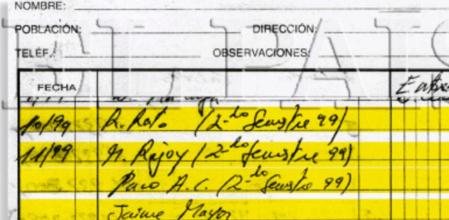 NOMBRE:
POBLACIÓN: DIRECCIÓN:
TELÉF.: OBSERVACIONES:
FECHA
10/99 R. Rato (2-do Semestre 99)
11/99 M. Rajoy (2-do Semestre 99)
Paco A.C. (2-do Semestre 99)
Jaime Mayor
EL PAÍS